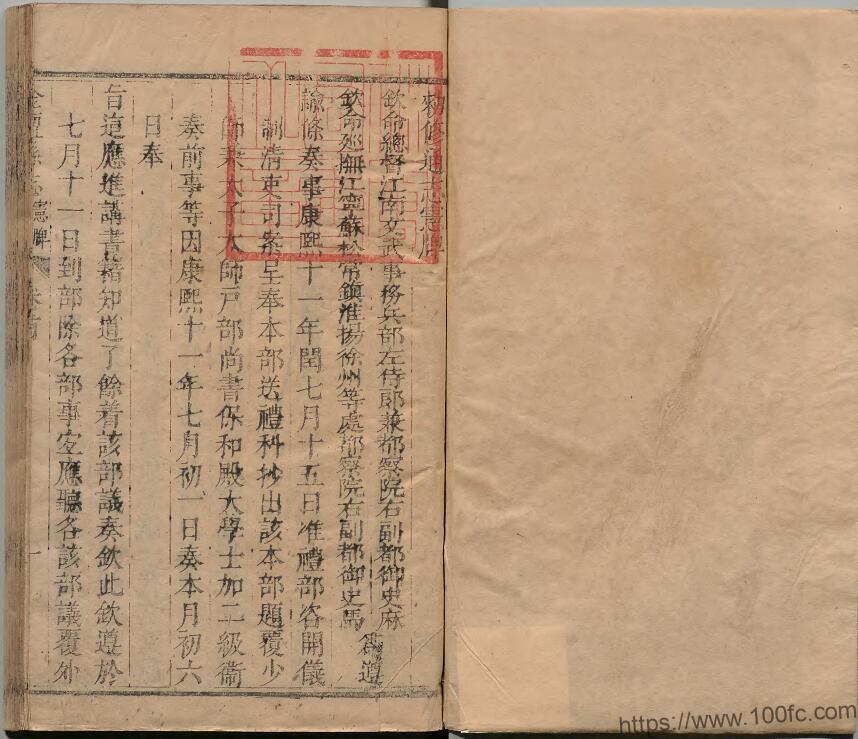 勅修通志憲牌
欽命總督江南文武事務兵部左侍郎兼都察院右副都御史麻
欽命廵撫江寧蘇松常鎮淮揚徐州等處都察院右副都御史馬
爲遵
諭條奏事康熙十一年閏七月十五日准禮部咨開儀
制清吏司案呈奉本部送禮科抄出該本部題覆少
師兼太子太師戸部尚書保和殿大學士加二級衛
奏前事等因康熙十一年七月初一日奏本月初六
日奉
旨這應進講書籍知道了餘着該部議奏欽此欽遵於
七月十一日到部除各部事宐應聽各該部議覆外
金壇縣志 憲牌 卷首 一
https://www.100fc.com